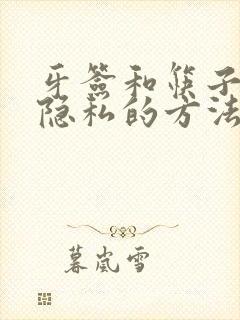 牙签和筷子
隐私的方法
暮岚雪